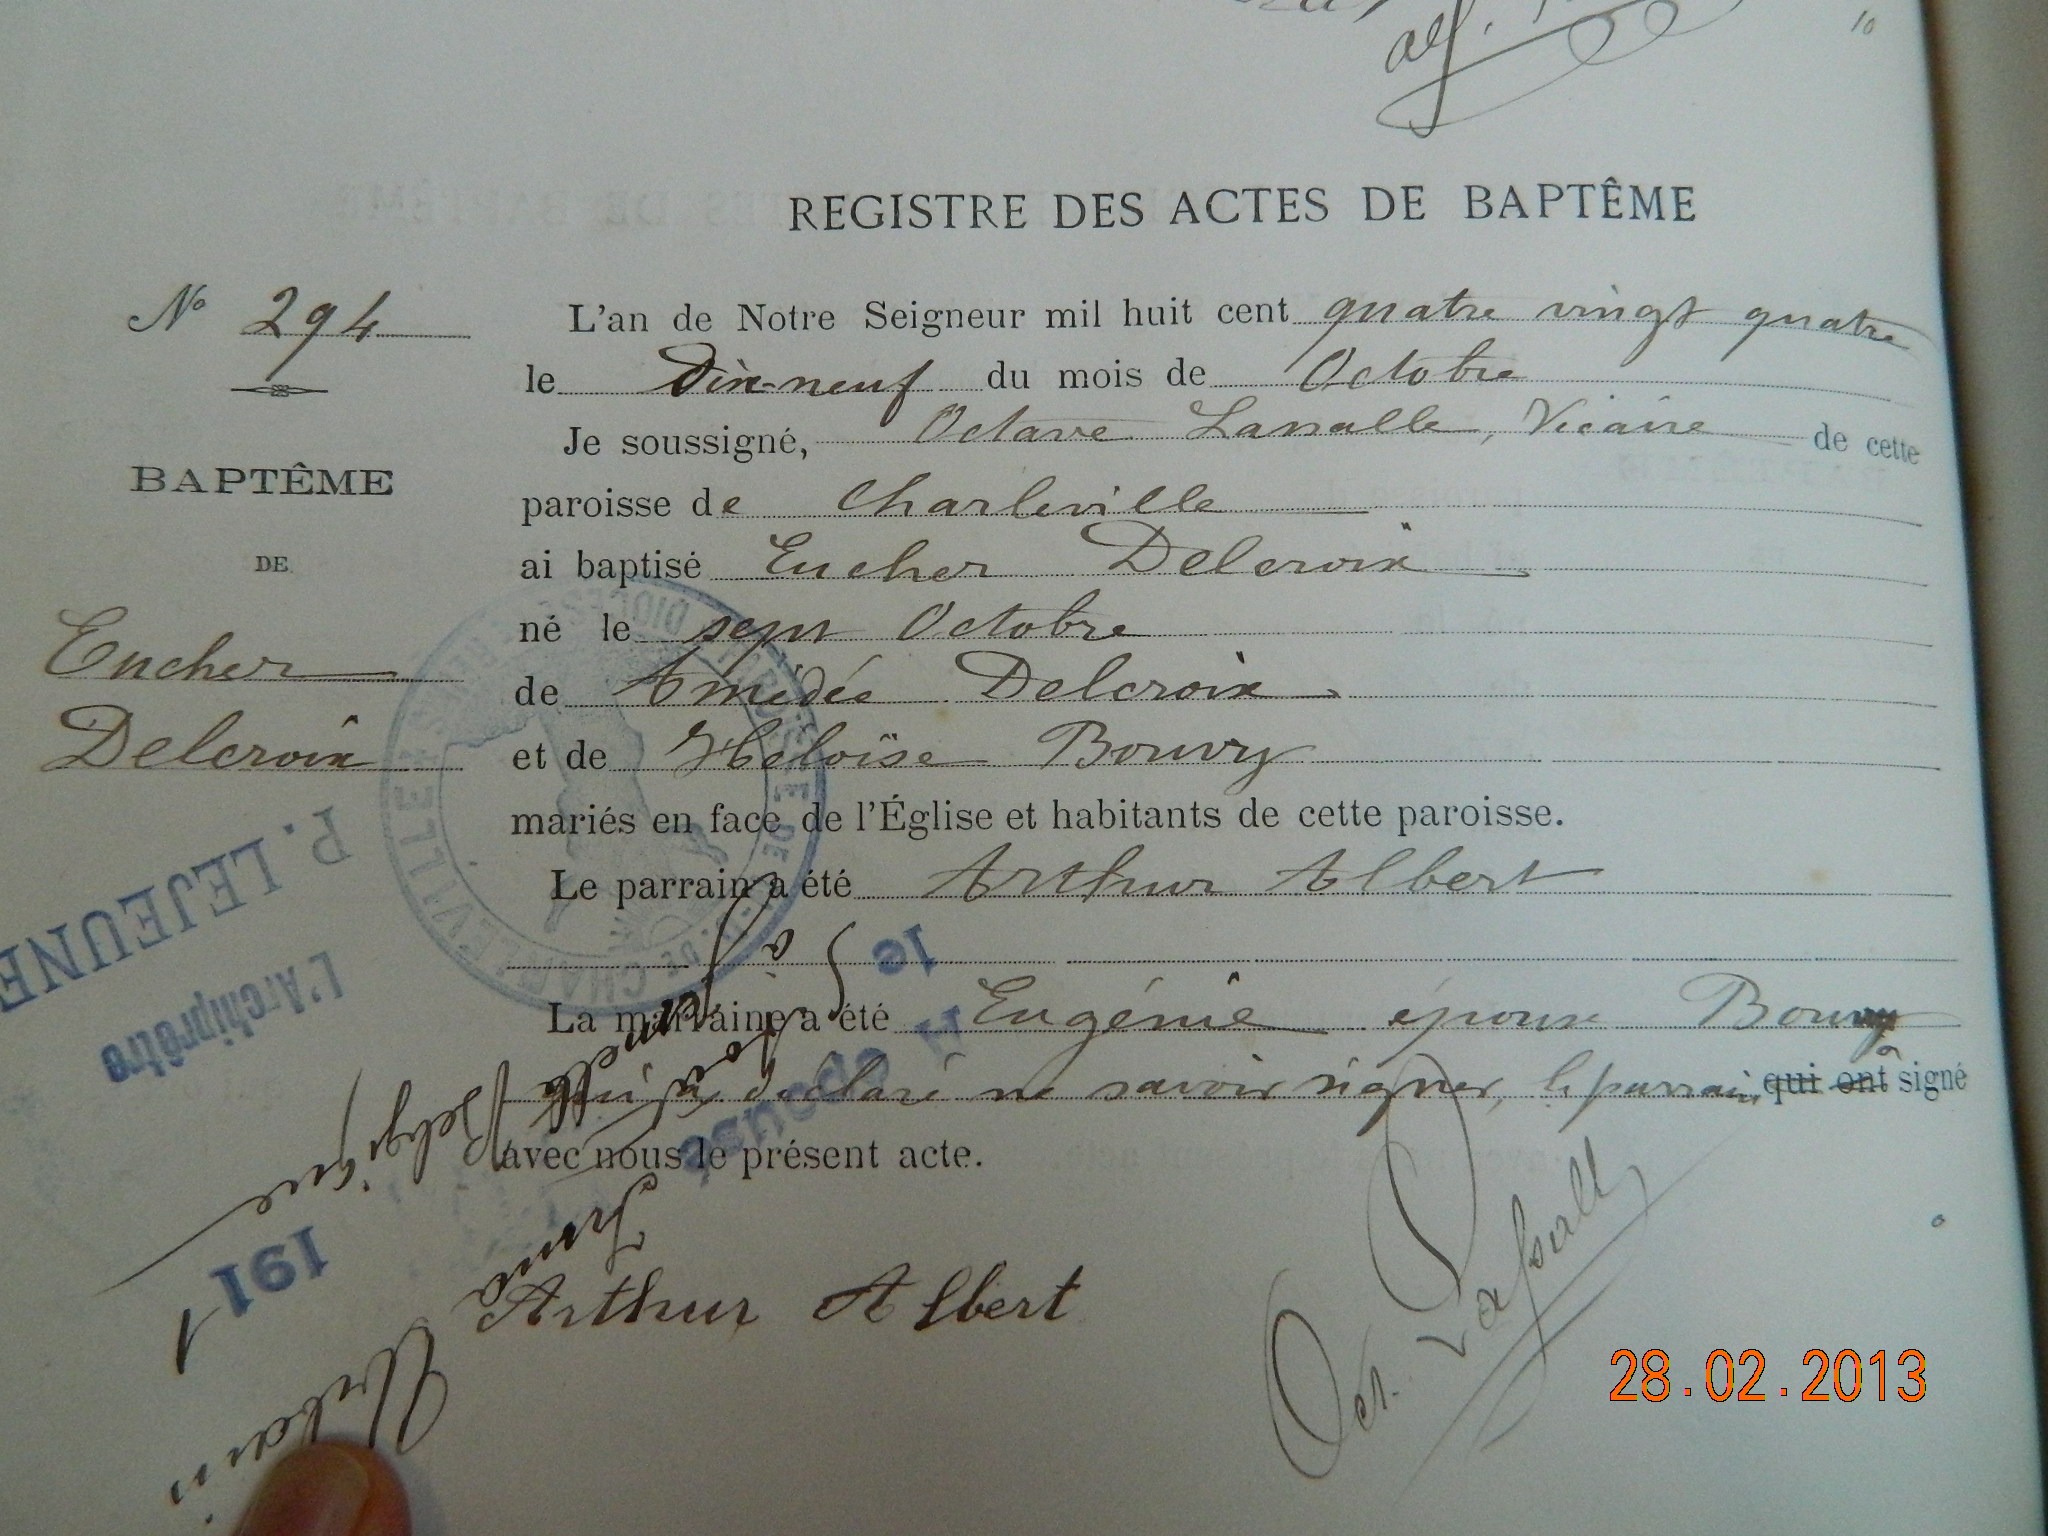 REGISTRE DES ACTES DE BAPTÊME
N° 294
L'an de Notre Seigneur mil huit cent quatre vingt quatre
le Dix-neuf du mois de Octobre
Je soussigné, Octave Lassalle, Vicaire de cette
paroisse de Charleville
BAPTÊME
DE
Eucher
Delcroix
ai baptisé Eucher Delcroix
né le sept Octobre
de Amédée Delcroix
et de Héloïse Bouvry
mariés en face de l'Église et habitants de cette paroisse.
Le parrain a été Arthur Albert
La marraine a été Eugénie épouse Bouvry
qui a déclaré ne savoir signer, le parrain qui ont a signé
avec nous le présent acte.
Arthur Albert
Oct. Lassalle
P. LEJEUNE
L'Archiprêtre
CHARLEVILLE
le
a épousé
à
Belgique
Irma
Urbain
191
28.02.2013
10